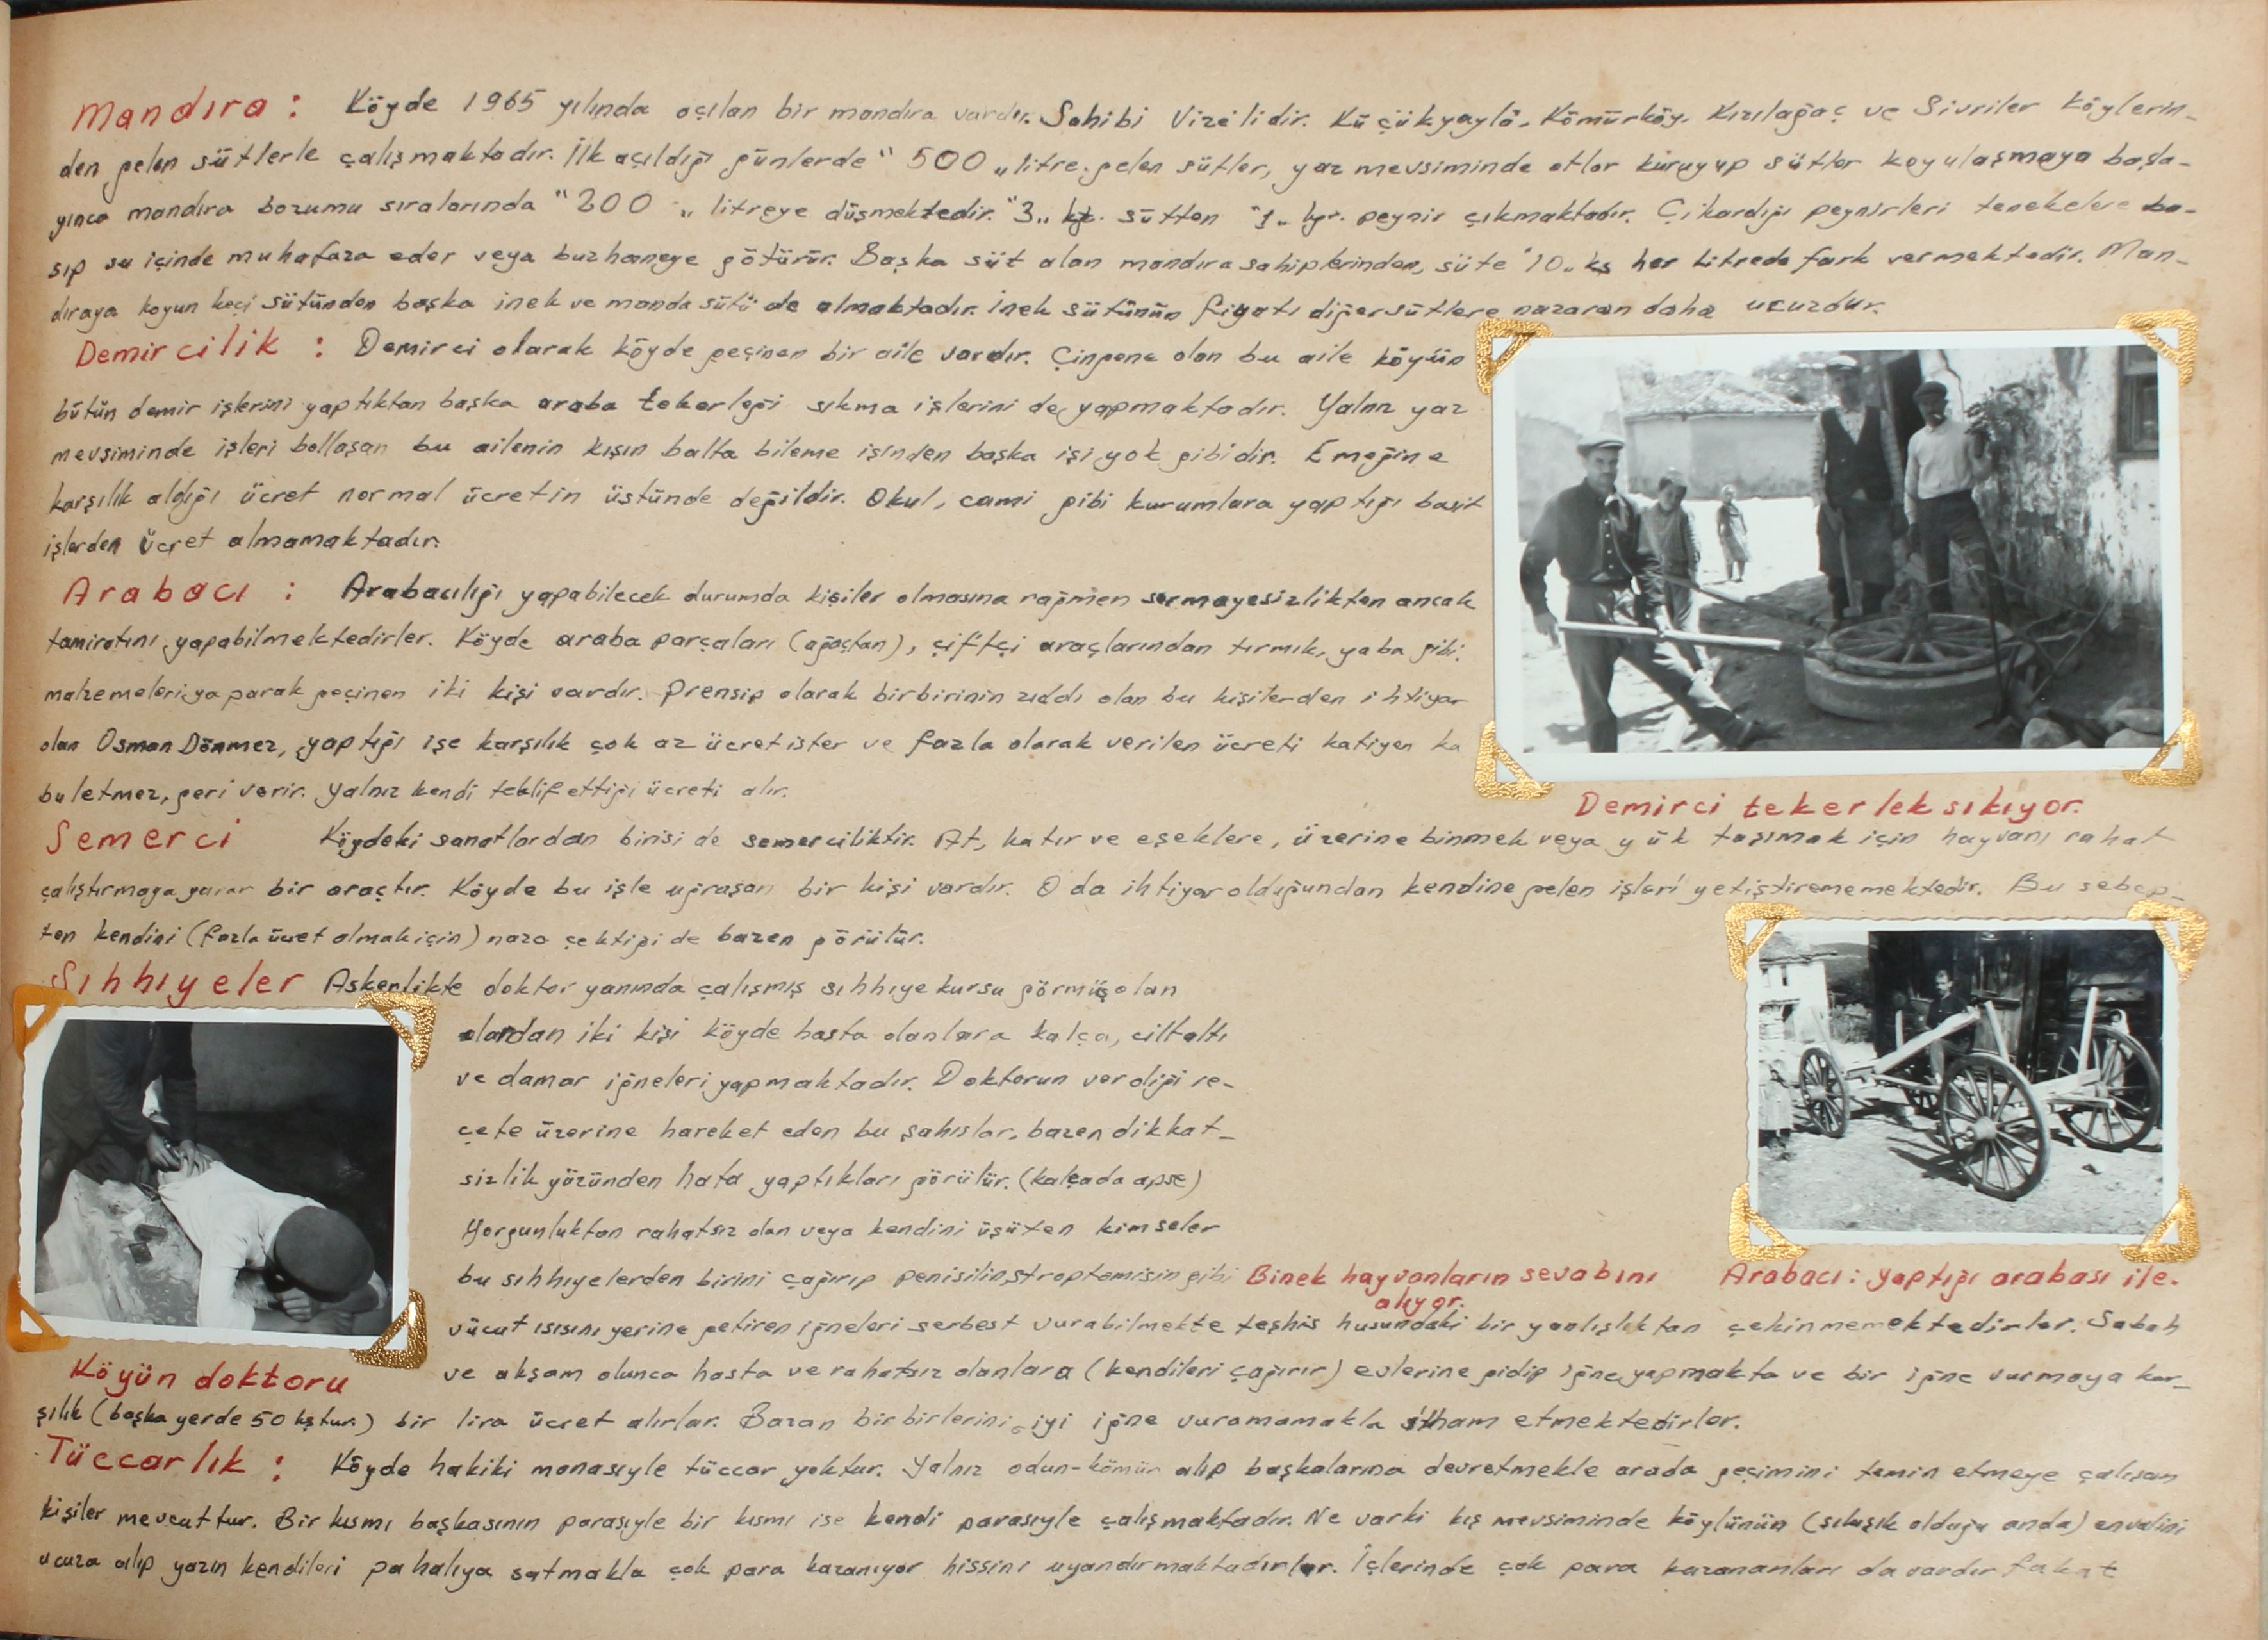 Mandıra : Köyde 1965 yılında açılan bir mandıra vardır. Sahibi Vizelidir. Küçükyayla, Kömürköy, Kızılağaç ve Sivriler Köylerin-
den gelen sütlerle çalışmaktadır. İlk açıldığı günlerde " 500 „ litre gelen sütler, yaz mevsiminde otlar kuruyup sütler koyulaşmaya başla-
yınca mandıra bozumu sıralarında "200 „ litreye düşmektedir. "3„ sütten "1„ kgr. peynir çıkmaktadır. Çıkardığı peynirleri tenekelere ba-
sıp su içinde muhafaza eder veya buzhaneye götürür. Başka süt alan mandıra sahiplerinden, süte "10„ kş her litrede fark vermektedir. Man-
dıraya koyun keçi sütünden başka inek ve manda sütü de almaktadır. İnek sütünün fiyatı diğer sütlere nazaran daha ucuzdur.
Demircilik : Demirci olarak köyde geçinen bir aile vardır. Çingene olan bu aile köyün
bütün demir işlerini yaptıktan başka araba tekerleği sıkma işlerini de yapmaktadır. Yalnız yaz
mevsiminde işleri bollaşan bu ailenin kışın balta bileme işinden başka işi yok gibidir. Emeğine
karşılık aldığı ücret normal ücretin üstünde değildir. Okul, cami gibi kurumlara yaptığı basit
işlerden ücret almamaktadır.
Arabacı : Arabacılığı yapabilecek durumda kişiler olmasına rağmen sermayesizlikten ancak
tamiratını yapabilmektedirler. Köyde araba parçaları (ağaçtan), çiftçi araçlarından tırmık, yaba gibi
malzemeleri yaparak geçinen iki kişi vardır. Prensip olarak birbirinin zıddı olan bu kişilerden ihtiyar
olan Osman Dönmez, yaptığı işe karşılık çok az ücret ister ve fazla olarak verilen ücreti katiyen ka
bul etmez, geri verir. Yalnız kendi teklif ettiği ücreti alır.
Demirci tekerlek sıkıyor.
Semerci Köydeki sanatlardan birisi de semerciliktir. At, katır ve eşeklere, üzerine binmek veya yük taşımak için hayvanı rahat
çalıştırmaya yarar bir araçtır. Köyde bu işle uğraşan bir kişi vardır. O da ihtiyar olduğundan kendine gelen işleri yetiştirememektedir. Bu sebep-
ten kendini (fazla ücret almak için) naza çektiği de bazen görülür.
Sıhhıyeler Askerlikte doktor yanında çalışmış sıhhıye kursu görmüş olan
olardan iki kişi köyde hasta olanlara kalça, ciltaltı
ve damar iğneleri yapmaktadır. Doktorun verdiği re-
çete üzerine hareket eden bu şahıslar, bazen dikkat-
sizlik yüzünden hata yaptıkları görülür. (kalçada apse)
Yorgunluktan rahatsız olan veya kendini üşüten kimseler
bu sıhhıyelerden birini çağırıp penisilin, streptomisin gibi
Binek hayvanların sevabını
alıyor.
Arabacı : yaptığı arabası ile.
vücut ısısını yerine getiren iğneleri serbest vurabilmekte teşhis husundaki bir yanlışlıktan çekinmemektedirler. Sabah
ve akşam olunca hasta ve rahatsız olanlara (kendileri çağırır) evlerine gidip iğne yapmakta ve bir iğne vurmaya kar-
Köyün doktoru
şılık (başka yerde 50 kştur.) bir lira ücret alırlar. Bazan birbirlerini iyi iğne vuramamakla itham etmektedirler.
Tüccarlık : Köyde hakiki manasıyle tüccar yoktur. Yalnız odun-kömür alıp başkalarına devretmekle arada geçimini temin etmeye çalışan
kişiler mevcuttur. Bir kısmı başkasının parasıyle bir kısmı ise kendi parasıyle çalışmaktadır. Ne varki kış mevsiminde köylünün (sıkışık olduğu anda) envalini
ucuza alıp yazın kendileri pahalıya satmakla çok para kazanıyor hissini uyandırmaktadırlar. İçlerinde çok para kazananları da vardır fakat